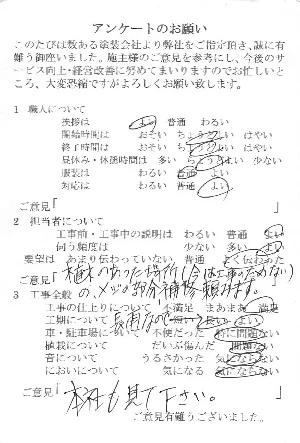 アンケートのお願い
このたびは数ある塗装会社より弊社をご指定頂き、誠に有
難う御座いました。施主様のご意見を参考にし、今後のサ
ービス向上・経営改善に努めてまいりますのでお忙しいと
ころ、大変恐縮ですがよろしくお願い致します。
1 職人について
挨拶は よい 普通 わるい
開始時間は おそい ちょうどいい はやい
終了時間は おそい ちょうどいい はやい
昼休み・休憩時間は 多い ちょうどいい 少ない
服装は わるい 普通 よい
対応は わるい 普通 よい
ご意見「
2 担当者について
工事前・工事中の説明は わるい 普通 よい
伺う頻度は 少ない 多い よい
要望は あまり伝わっていない 普通 よく伝わった
ご意見「植木のあった場所(今は工事のためない)
の、メッシュ部分補修頼みます。
3 工事全般
工事の仕上りについて 不満足 まあまあ 満足
工期について 長雨なので 短い 長い よい
車・駐車場について 不便だった 特に問題ない
植栽について だいぶ傷んだ 問題ない
音について うるさかった 気にならない
においについて 気になる 気にならない
ご意見「本社も見て下さい。
ご意見有難うございました。